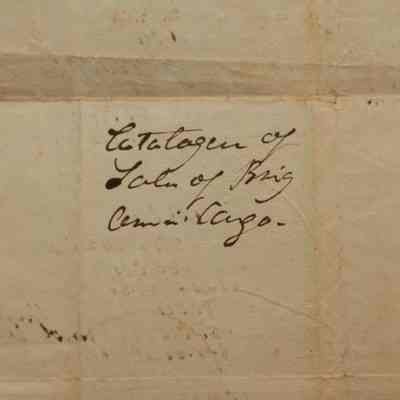 Catalogue of
Sale of Brig
Cargo.